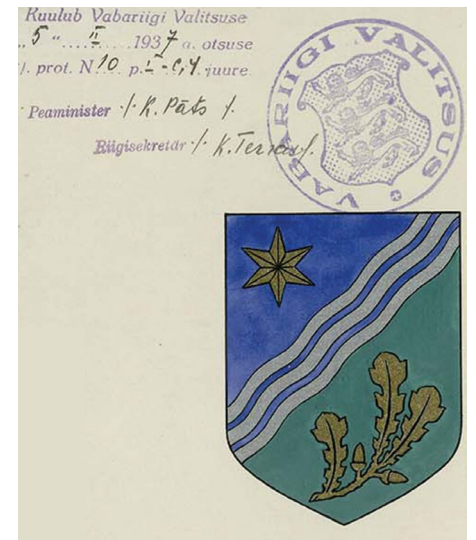 Kuulub Vabariigi Valitsuse
„5“ II 1937 a. otsuse
prot. N 10 p. I - juure
Peaminister /. K. Päts /.
Riigisekretär /. K. Terras /.
VABARIIGI VALITSUS